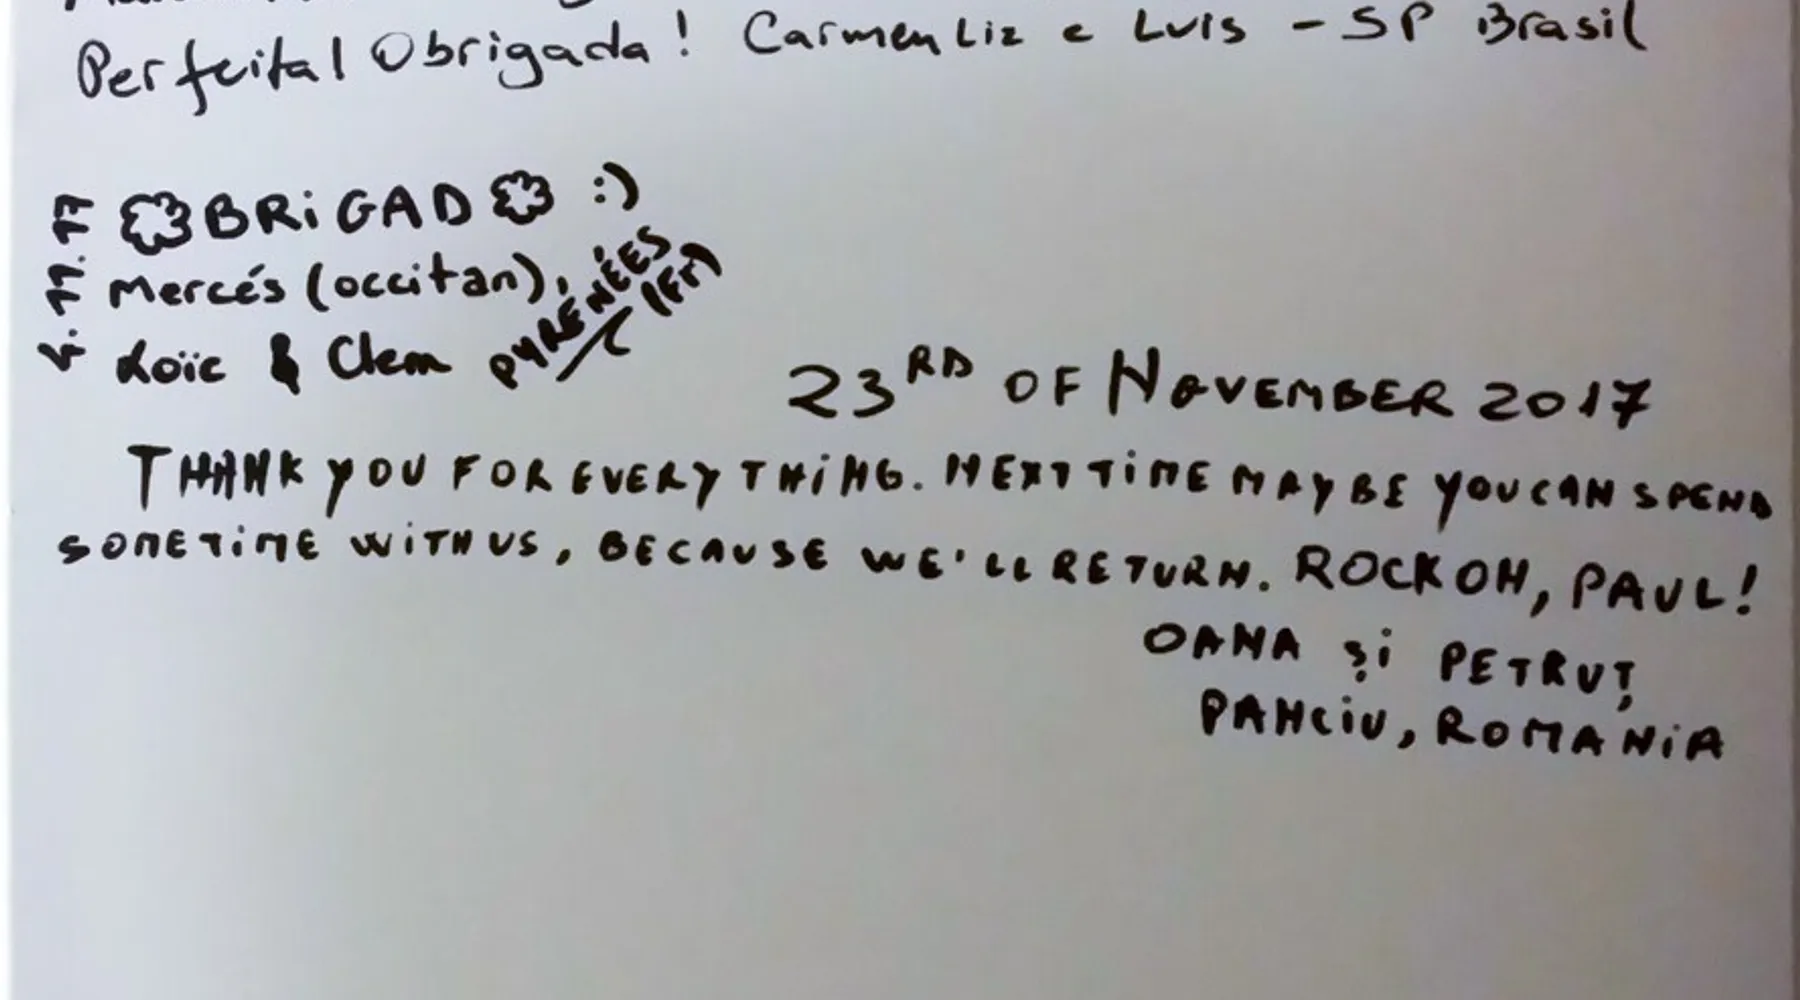 Perfeita! Obrigada! Carmen Liz e Luis - SP Brasil
OBRiGADO :)
Mercés (occitan),
Loïc & Clem PYRENÉES (Fr)
23RD OF NOVEMBER 2017
THANK YOU FOR EVERYTHING. NEXT TiME MAYBE YOU CAN SPEND
SOMETiME WiTH US, BECAUSE WE'LL RETURN. ROCK ON, PAUL!
OANA și PETRUȚ
PANCiU, ROMANiA